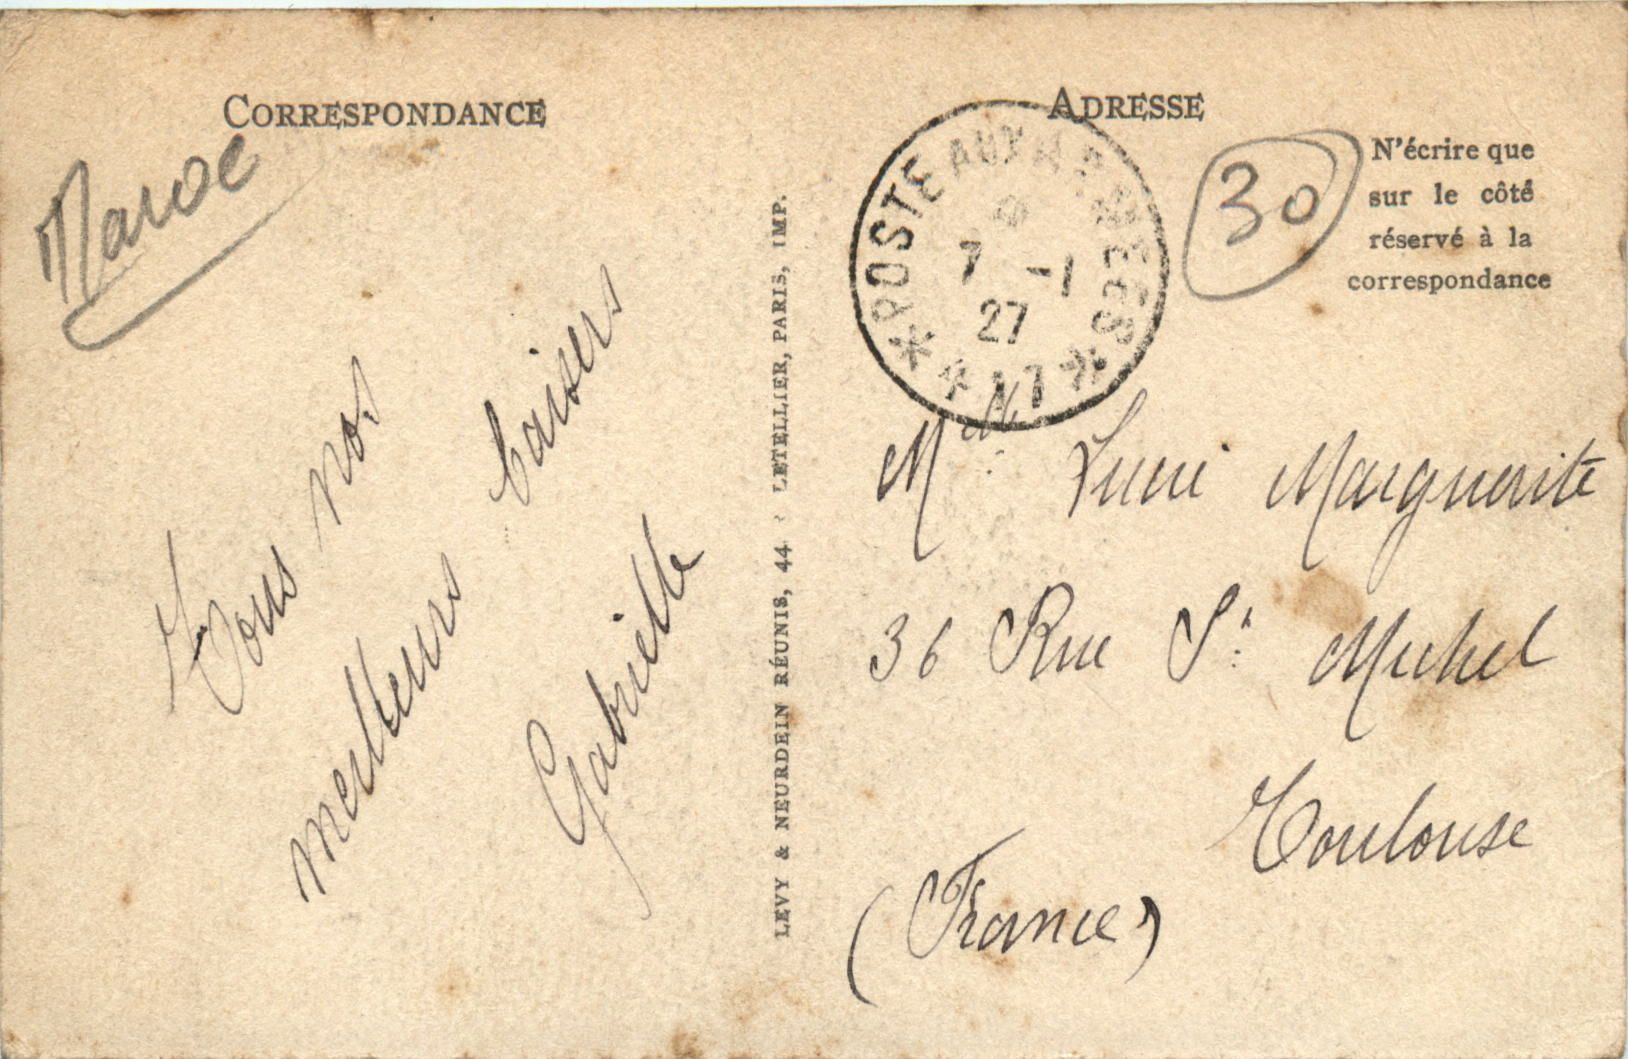 CORRESPONDANCE
Maroc
Tous nos
meilleurs baisers
Gabrielle
LEVY & NEURDEIN RÉUNIS, 44 LETELLIER, PARIS, IMP.
ADRESSE
N'écrire que
sur le côté
réservé à la
correspondance
30
*POSTE AUX ARMÉES*
7 -1
27
Melle Marguerite
36 Rue St Michel
Toulouse
(France)